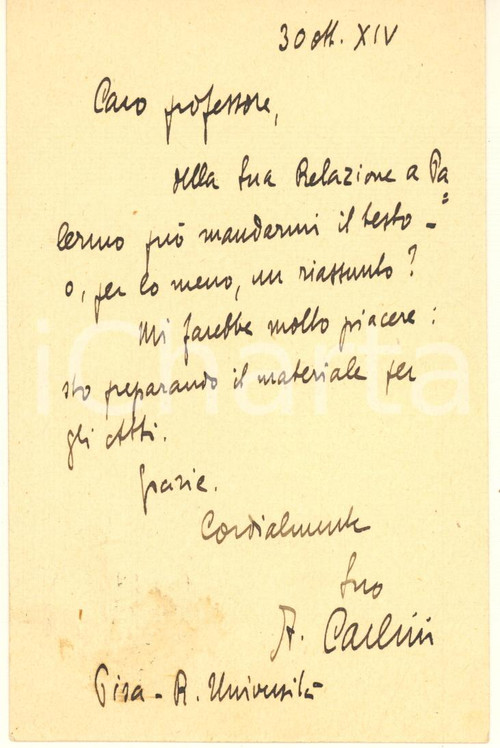 30 ott. XIV
Caro professore,
della Sua Relazione a Pa=
lermo può mandarmi il testo –
o, per lo meno, un riassunto?
Mi farebbe molto piacere:
sto preparando il materiale per
gli Atti.
Grazie.
Cordialmente
Suo
A. Carlini
Pisa – R. Università
iCharta